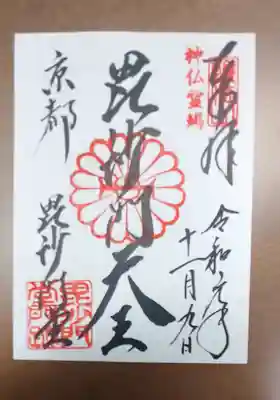 奉拝
令和元年
十一月九日
神仏霊場
毘沙門天王
京都
毘沙門堂